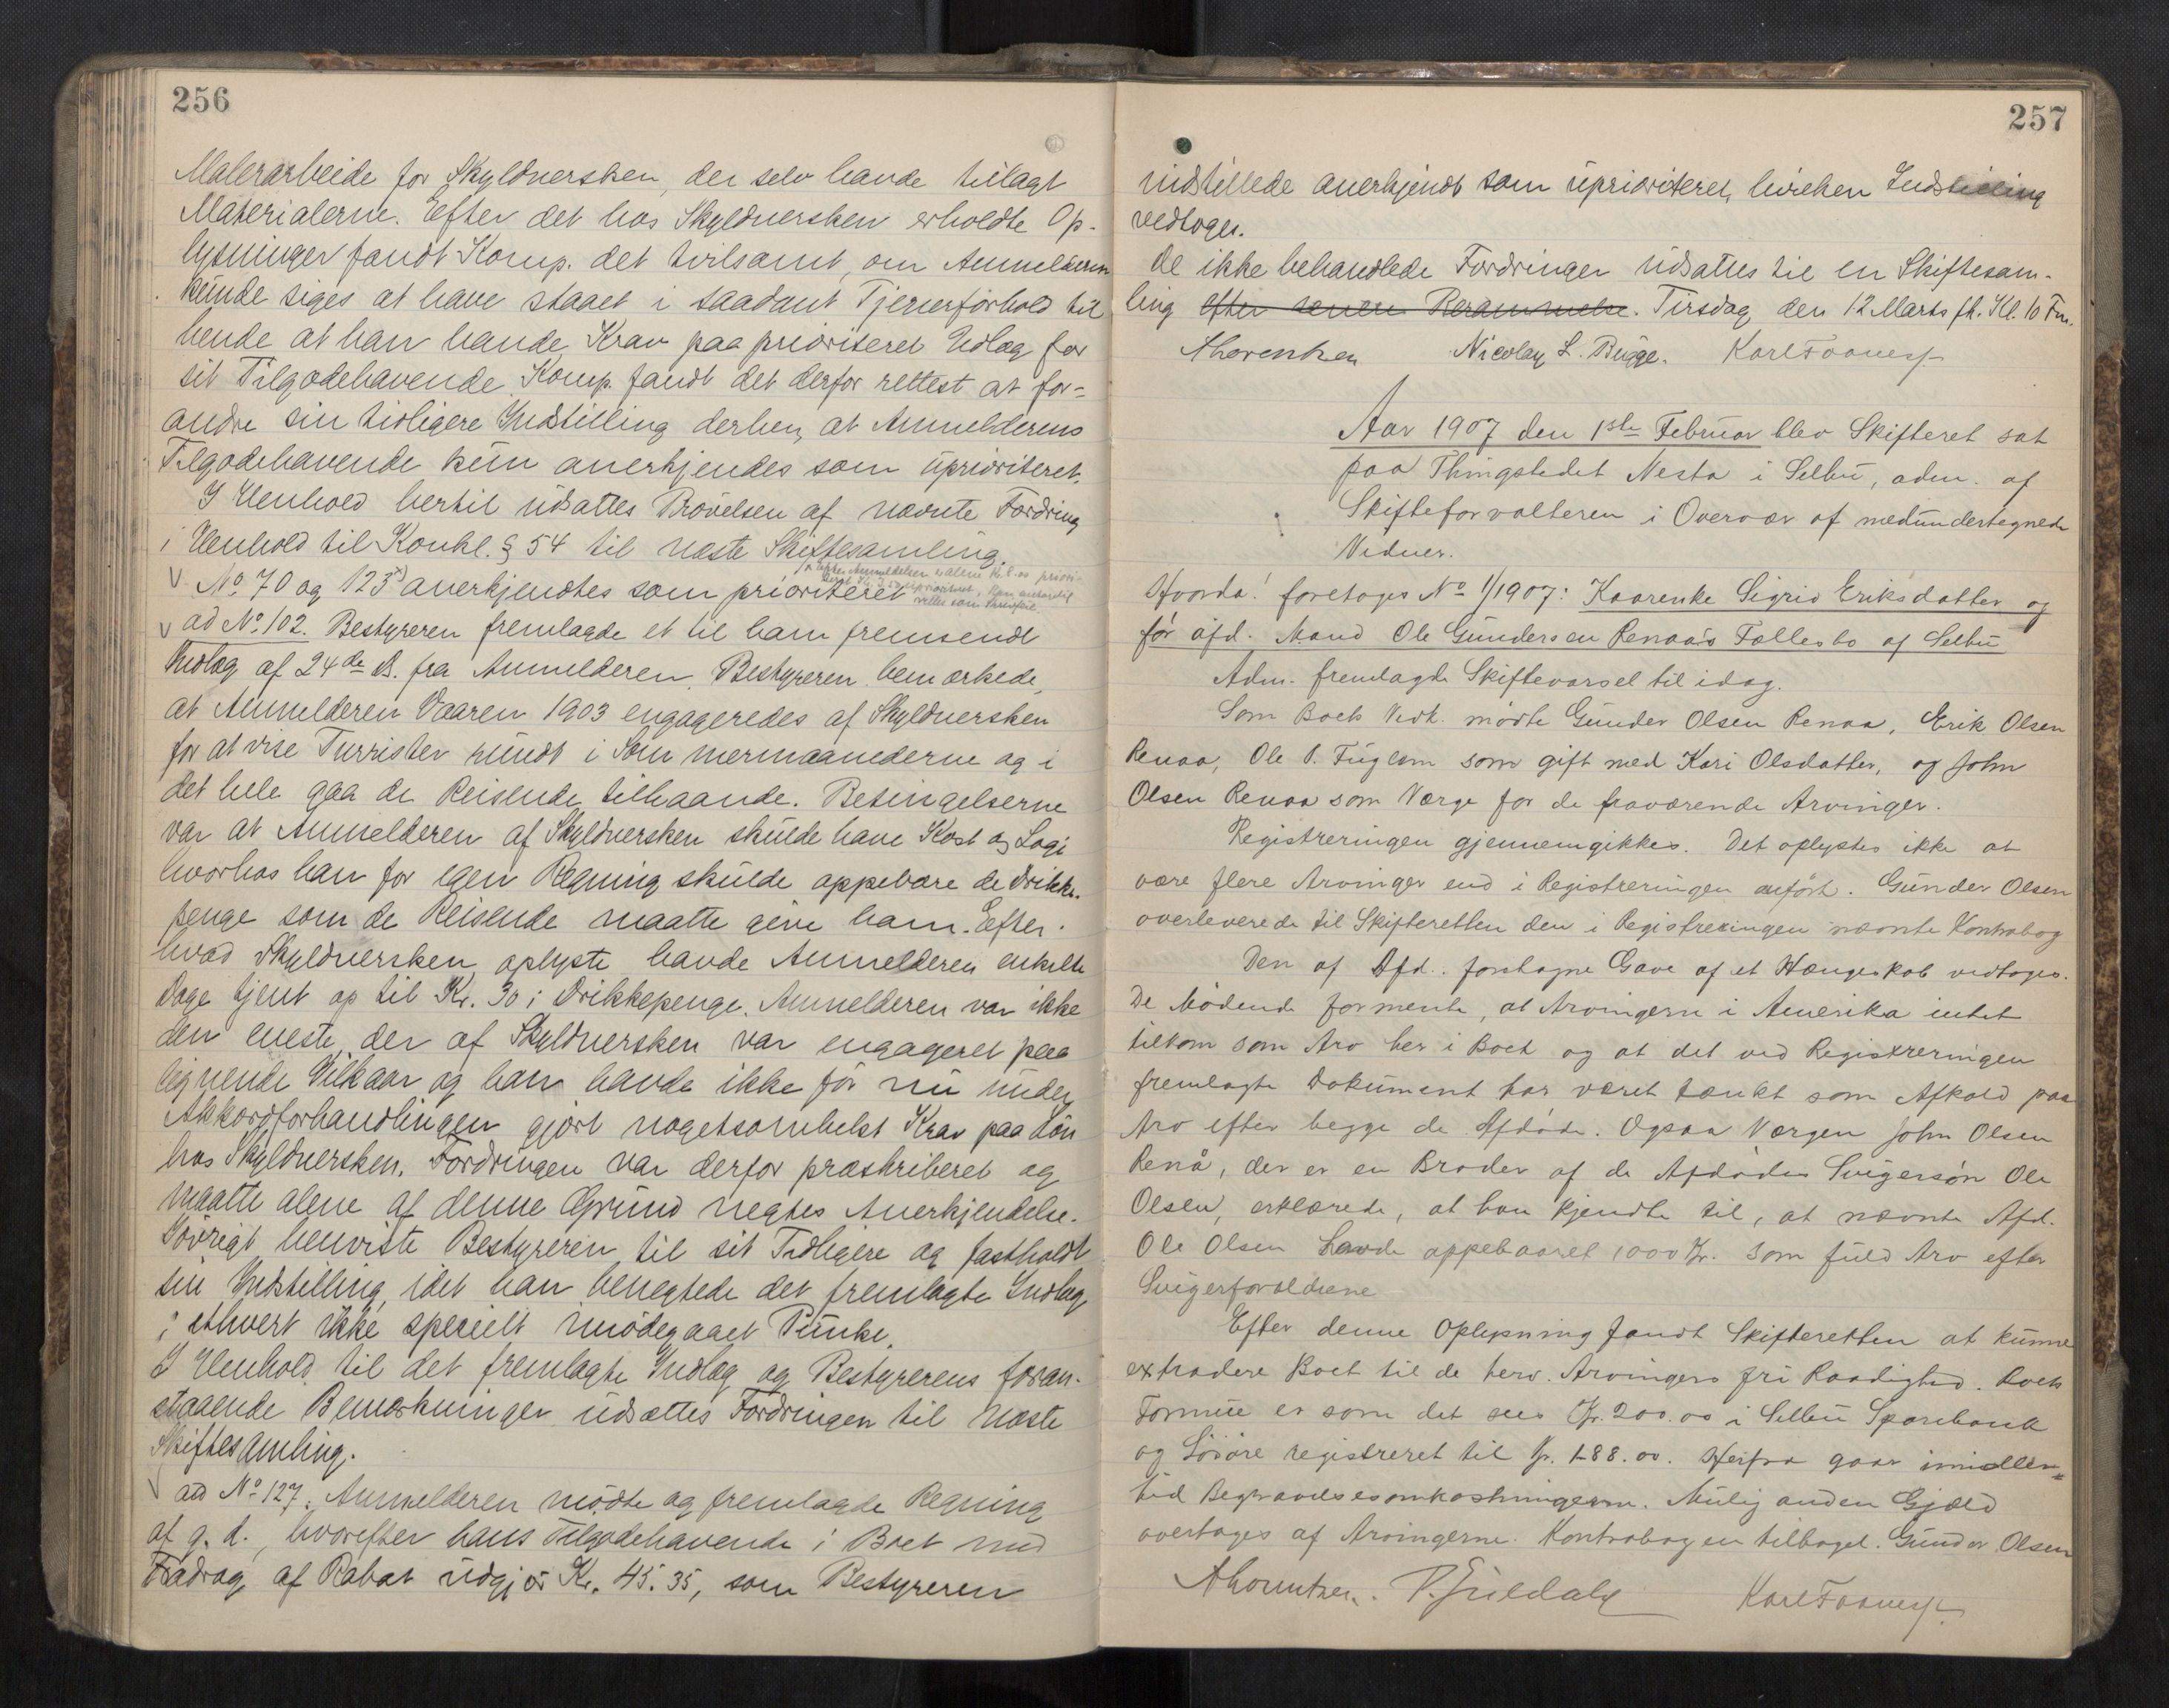 256
Malerarbeide for Skyldnersken, der selv havde tillagt
Materialerne. Efter det hos Skyldnersken erholdte Op-
lysninger fandt Komp. det tvilsomt, om Anmelderen
kunde siges at have staaet i saadant Tjenerforhold til
hende at han havde Krav paa prioriteret Udlæg for
sit Tilgodehavende. Komp. fandt det derfor rettest at for-
andre sin tidligere Indstilling derhen, at Anmelderens
Tilgodehavende kun anerkjendes som uprioriteret.
I Henhold hertil udsattes Prøvelsen af nævnte Fordring
i Henhold til Konkl. § 54 til næste Skiftesamling.
No. 70 og 123 x) anerkjendtes som prioriteret
ad No. 102. Bestyreren fremlagde et til ham fremsendt
Indlæg af 24de ds. fra Anmelderen. Bestyreren bemærkede,
at Anmelderen Vaaren 1903 engageredes af Skyldnersken
for at vise Turrister rundt i Sommermaanederne og i
det hele gaa de Reisende tilhaande. Betingelserne
var at Anmelderen af Skyldnersken skulde have Kost og Logi
hvorhos han for egen Regning skulde oppebære de Drikke-
penge som de Reisende maatte give ham. Efter
hvad Skyldnersken oplyste havde Anmelderen enkelte
Dage tjent op til Kr. 30 i Drikkepenge. Anmelderen var ikke
den eneste, der af Skyldnersken var engageret paa
lignende Vilkaar og han havde ikke før nu under
Akkordforhandlingen gjort nogetsomhelst Krav paa Løn
hos Skyldnersken. Fordringen var derfor præskriberet og
maatte alene af denne Grund negtes Anerkjendelse.
Iøvrigt henviste Bestyreren til sit Tidligere og fastholdt
sin Indstilling, idet han benegtede det fremlagte Indlæg
i ethvert ikke specielt imødegaaet Punkt.
I Henhold til det fremlagte Indlæg og Bestyrerens foran-
staaende Bemærkninger udsættes Fordringen til næste
Skiftesamling.
ad No. 127. Anmelderen mødte og fremlagde Regning
af g. d., hvorefter hans Tilgodehavende i Boet med
Fradrag af Rabat udgjør Kr. 45.35, som Bestyreren
257
indstillede anerkjendt som uprioriteret, hvilken Indstilling
vedtoges.
De ikke behandlede Fordringer udsattes til en Skiftesam-
ling efter senere Berammelse. Tirsdag den 12 Marts fk. Kl. 10 Fm.
Nicolay L. Bugge. Karl Faanes
Aar 1907 den 1ste Februar blev Skifteret sat
paa Thingstedet Nesta i Selbu, adm. af
Skifteforvalteren i Overvær af medundertegnede
Vidner.
Hvorda! foretoges No 1/1907: Kaarenke Sigrid Eriksdatter og
før afd. Mand Ole Gundersen Renaa's Fællesbo af Selbu
Adm. fremlagde Skiftevarsel til idag.
Som Boets Vedk. mødte Gunder Olsen Renaa, Erik Olsen
Renaa, Ole P. Fuglem som gift med Kari Olsdatter, og John
Olsen Renaa som Værge for de fraværende Arvinger.
Registreringen gjennemgikkes. Det oplystes ikke at
være flere Arvinger end i Registreringen anført. Gunder Olsen
overleverede til Skifteretten den i Registreringen nævnte Kontrabog
Den af Afd. foretagne Gave af et Hængeskab vedtoges.
De Mødende formente, at Arvingerne i Amerika intet
tilkom som Arv her i Boet og at det ved Registreringen
fremlagte Dokument har været tænkt som Afkald paa
Arv efter begge de Afdøde. Ogsaa Værgen John Olsen
Renå, der er en Broder af de Afdødes Svigersøn Ole
Olsen, erklærede, at han kjendte til, at nævnte Afd.
Ole Olsen havde oppebaaret 1000 Kr. som fuld Arv efter
Svigerforældrene
Efter denne Oplysning fandt Skifteretten at kunne
extradere Boet til de herv. Arvingers fri Raadighed. Boets
Formue er som det sees Kr. 200.00 i Selbu Sparebank
og Løsøre registreret til Kr. 188.00. Herfra gaar imidler-
tid Begravelsesomkostningerne. Mulig anden Gjæld
overtages af Arvingerne. Kontrabogen tilbaget. Gunder Olsen
Karl Faanes